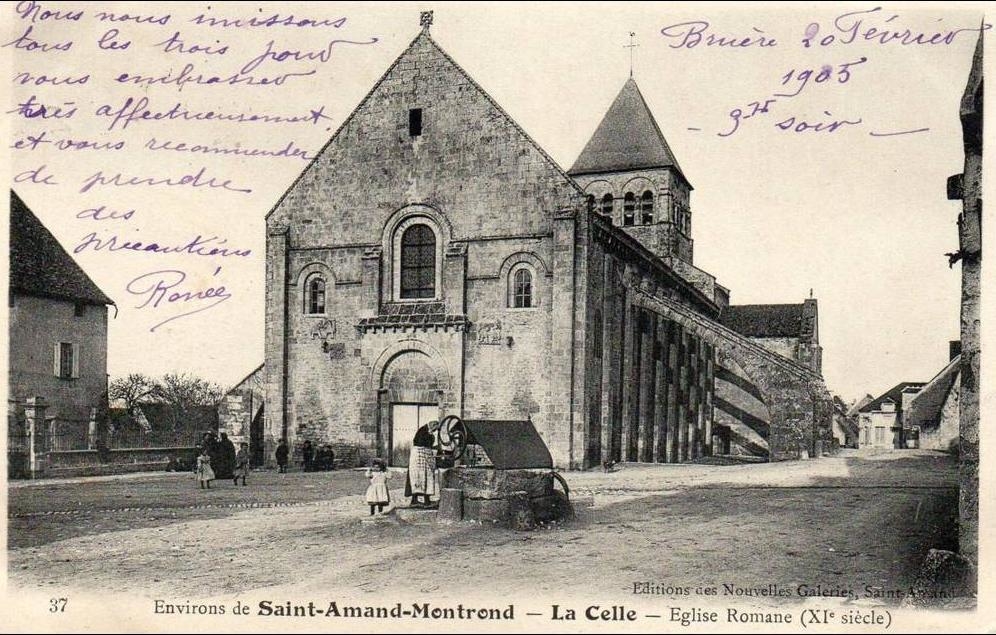 Nous nous unissons
tous les trois pour
vous embrasser
très affectueusement
et vous recommender
de prendre
des
précautions
Renée
Bruère 20 Février
1905
- 9H soir -
Editions des Nouvelles Galeries, Saint-Amand
37 Environs de Saint-Amand-Montrond – La Celle – Eglise Romane (XIe siècle)